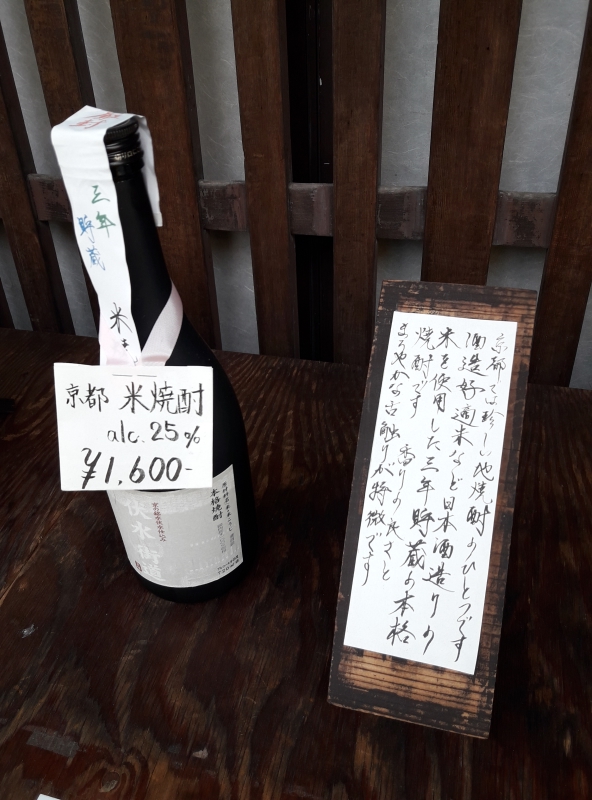 三年
貯蔵
米
京都 米焼酎
alc. 25%
¥1,600-
本格焼酎
京都には珍し地焼酎のひとつです
酒造好適米など日本酒造りの
米を使用した三年貯蔵の本格
焼酎です 香りの良さと
まろやかな舌触りが特徴です